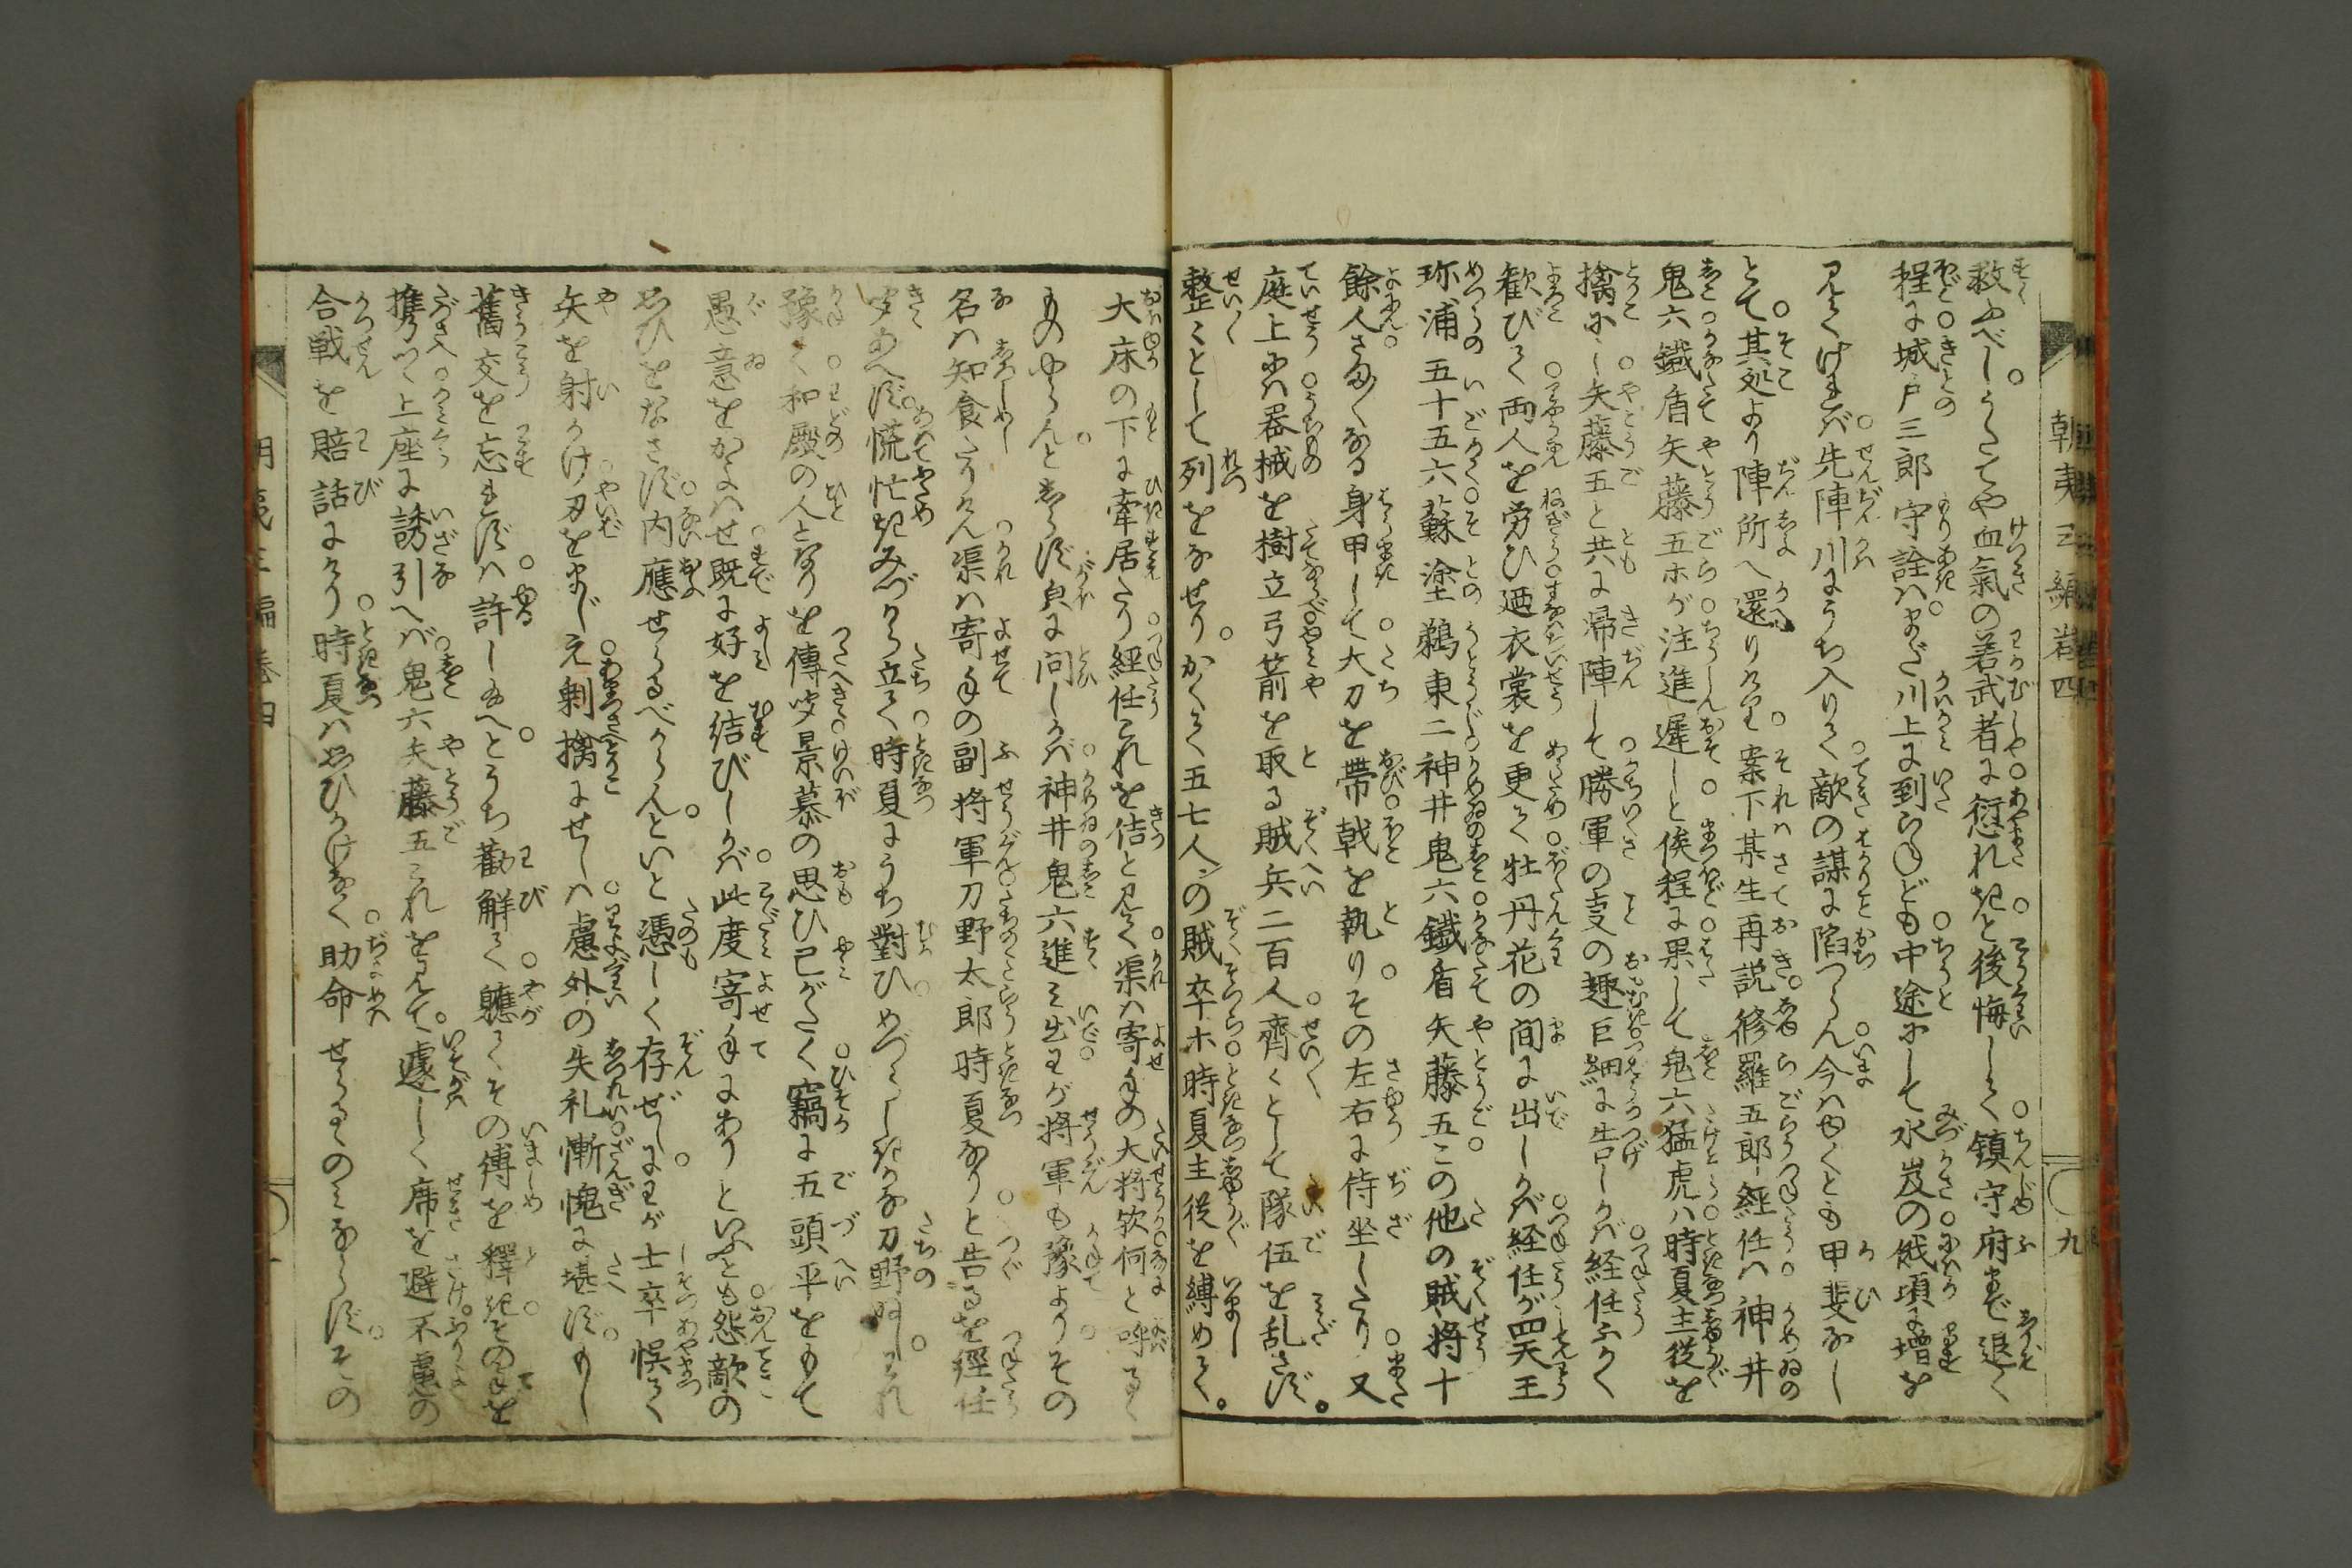 朝夷三編巻四
九
救ふべしうたてや血氣の若武者に愆れきと後悔して鎮守府まで退く
程に城戸三郎守詮はまだ川上に到らねども中途にして水岌の俄頃に増を
見てければ先陣川にうち入りて敵の謀に陥つらん今はゆくとも甲斐なし
とて其処より陣所へ還りけり案下某生再説修羅五郎経任は神井
鬼六鐡盾矢藤五ホが注進遲しと俟程に果して鬼六猛虎は時夏主従を
擒にし矢藤五と共に帰陣して勝軍の支の趣巨細に告しかば経任ふかく
歓びて両人を労ひ廼衣裳を更て牡丹花の間に出しかば経任が四天王
珎浦五十五六蘇塗鵜東二神井鬼六鐡盾矢藤五この他の賊将十
餘人さゞなる身甲して大刀を帯戟を執りその左右に侍坐したり又
庭上には器械を樹立弓箭を取る賊兵二百人齊くとして隊伍を乱さず。
整くとして列をなせり。かくて五七人の賊卒ホ時夏主従を縛めて。
大床の下に牽居たり経任これを佶と見て渠は寄手の大将欤何と呼るゝ
ものやらんとあらず貞に問しかば神井鬼六進み出わが将軍も豫よりその
名は知食たりけん渠は寄手の副将軍刀野太郎時夏なりと告るを經任
聞あへず慌忙きみづから立て時夏にうち對ひめづらしきかな刀野ぬしわれ
豫て和殿の人となりを傳聞景慕の思ひ已がたく竊に五頭平をもて
愚意をかよはせ既に好を結びしかば此度寄手にありといふとも怨敵の
思ひをなさず内應せらるべからんといと憑しく存ぜしにわが士卒悞て
矢を射かけ刃をまじえ剰擒にせしは慮外の失礼慚愧に堪ずもし
舊交を忘れずは許し給へとうち勸解て軈てその縛を釋きその手を
携りつゝ上座に誘引へば鬼六夫藤五これを見て遽しく席を避不慮の
合戦を賠話にけり時夏は思ひかけなく助命せらるゝのみならずその